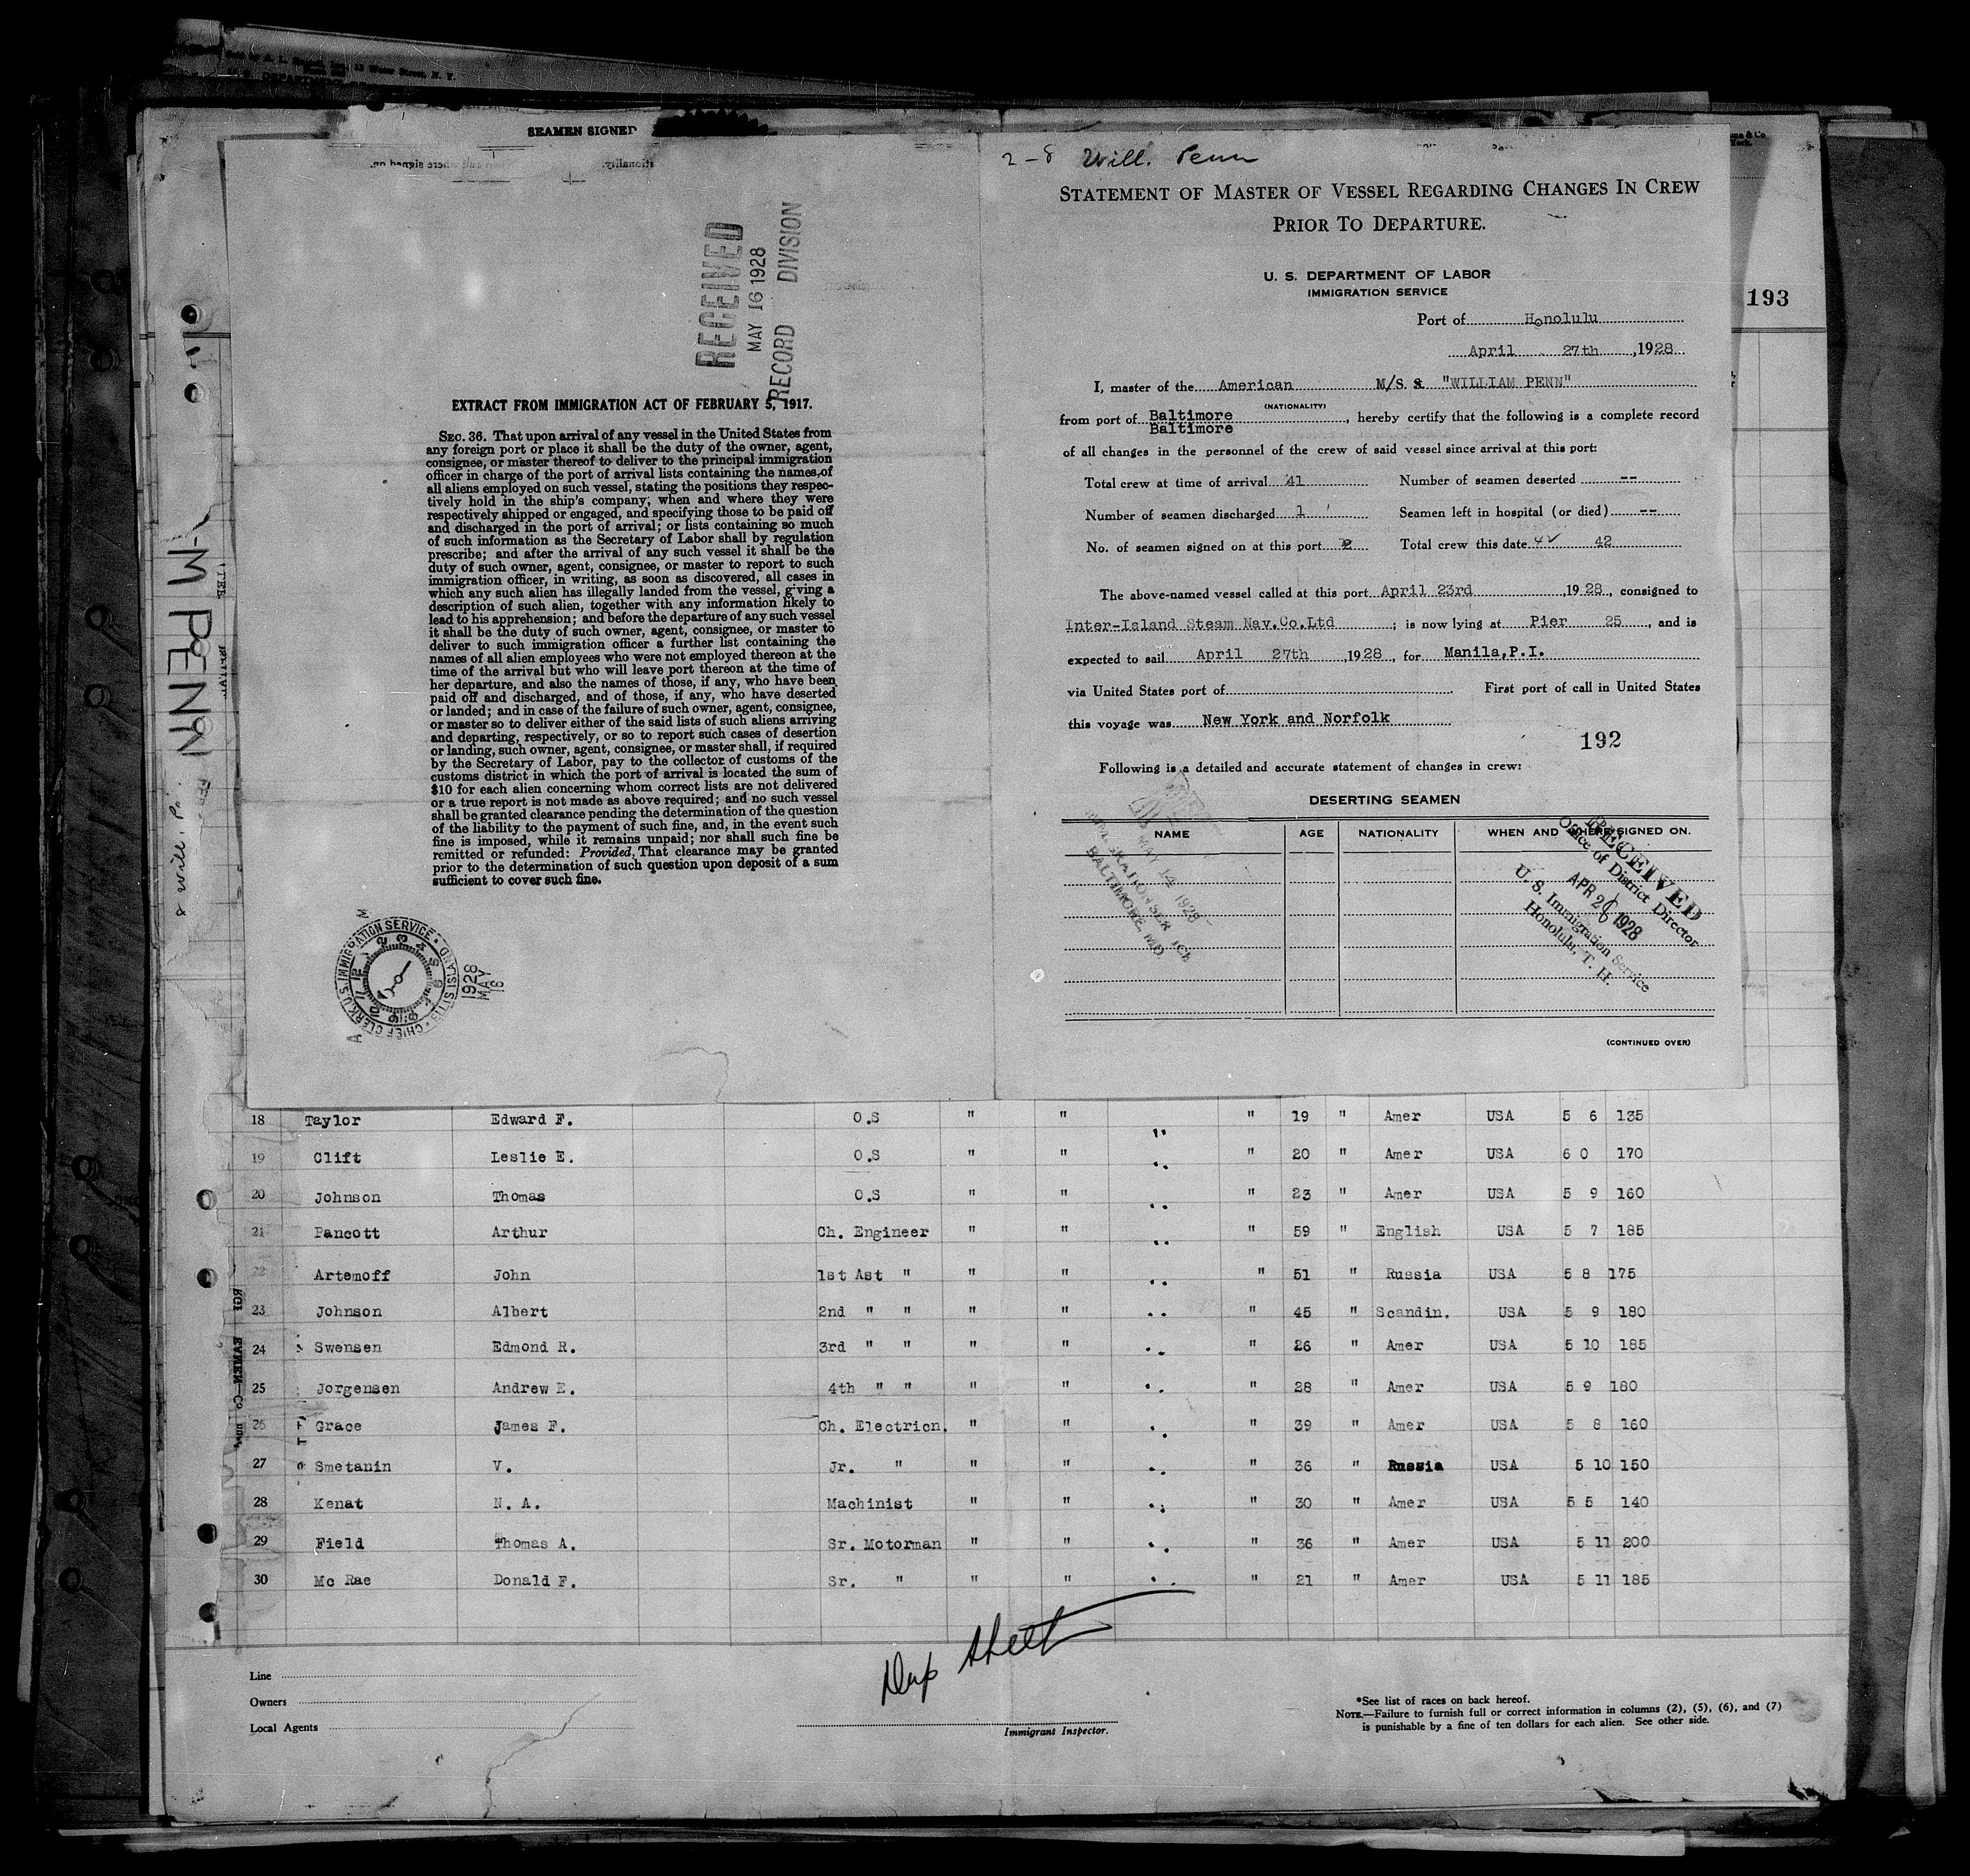 13 Water Street, N. Y.
SEAMEN SIGNED
RECEIVED
MAY 16 1928
RECORD DIVISION
EXTRACT FROM IMMIGRATION ACT OF FEBRUARY 5, 1917.
SEC. 36. That upon arrival of any vessel in the United States from
any foreign port or place it shall be the duty of the owner, agent,
consignee, or master thereof to deliver to the principal immigration
officer in charge of the port of arrival lists containing the names of
all aliens employed on such vessel, stating the positions they respec-
tively hold in the ship's company, when and where they were
respectively shipped or engaged, and specifying those to be paid off
and discharged in the port of arrival; or lists containing so much
of such information as the Secretary of Labor shall by regulation
prescribe; and after the arrival of any such vessel it shall be the
duty of such owner, agent, consignee, or master to report to such
immigration officer, in writing, as soon as discovered, all cases in
which any such alien has illegally landed from the vessel, giving a
description of such alien, together with any information likely to
lead to his apprehension; and before the departure of any such vessel
it shall be the duty of such owner, agent, consignee, or master to
deliver to such immigration officer a further list containing the
names of all alien employees who were not employed thereon at the
time of the arrival but who will leave port thereon at the time of
her departure, and also the names of those, if any, who have been
paid off and discharged, and of those, if any, who have deserted
or landed; and in case of the failure of such owner, agent, consignee,
or master so to deliver either of the said lists of such aliens arriving
and departing, respectively, or so to report such cases of desertion
or landing, such owner, agent, consignee, or master shall, if required
by the Secretary of Labor, pay to the collector of customs of the
customs district in which the port of arrival is located the sum of
$10 for each alien concerning whom correct lists are not delivered
or a true report is not made as above required; and no such vessel
shall be granted clearance pending the determination of the question
of the liability to the payment of such fine, and, in the event such
fine is imposed, while it remains unpaid; nor shall such fine be
remitted or refunded: Provided, That clearance may be granted
prior to the determination of such question upon deposit of a sum
sufficient to cover such fine.
CHIEF CLERK U.S. IMMIGRATION SERVICE
1928
MAY
16
M PENN
8 Will. Pe
2-8 Will. Penn
STATEMENT OF MASTER OF VESSEL REGARDING CHANGES IN CREW
PRIOR TO DEPARTURE.
U. S. DEPARTMENT OF LABOR
IMMIGRATION SERVICE
193
Port of Honolulu
April 27th, 1928
I, master of the American M/S. "WILLIAM PENN"
(NATIONALITY)
from port of Baltimore, hereby certify that the following is a complete record
Baltimore
of all changes in the personnel of the crew of said vessel since arrival at this port:
Total crew at time of arrival 41 Number of seamen deserted --
Number of seamen discharged 1 Seamen left in hospital (or died) --
No. of seamen signed on at this port 2 Total crew this date 42
The above-named vessel called at this port April 23rd, 1928, consigned to
Inter-Island Steam Nav.Co.Ltd; is now lying at Pier 25, and is
expected to sail April 27th, 1928, for Manila,P.I.
via United States port of First port of call in United States
this voyage was New York and Norfolk
192
Following is a detailed and accurate statement of changes in crew:
DESERTING SEAMEN
NAME AGE NATIONALITY WHEN AND WHERE SIGNED ON.
MAY 14 1928
IMMIGRATION SERVICE
BALTIMORE, MD.
RECEIVED
Office of District Director
APR 26 1928
U. S. Immigration Service
Honolulu, T. H.
(CONTINUED OVER)
18 Taylor Edward F. O.S " " " " 19 " Amer USA 5 6 135
19 Clift Leslie E. O.S " " " " 20 " Amer USA 6 0 170
20 Johnson Thomas O.S " " " " 23 " Amer USA 5 9 160
21 Pancott Arthur Ch. Engineer " " " " 59 " English USA 5 7 185
22 Artemoff John 1st Ast " " " " " 51 " Russia USA 5 8 175
23 Johnson Albert 2nd " " " " " " 45 " Scandin. USA 5 9 180
24 Swensen Edmond R. 3rd " " " " " " 26 " Amer USA 5 10 185
25 Jorgensen Andrew E. 4th " " " " " " 28 " Amer USA 5 9 180
26 Grace James F. Ch. Electricn. " " " " 39 " Amer USA 5 8 160
27 Smetanin V. Jr. " " " " " 36 " Russia USA 5 10 150
28 Kenat N. A. Machinist " " " " 30 " Amer USA 5 5 140
29 Field Thomas A. Sr. Motorman " " " " 36 " Amer USA 5 11 200
30 Mc Rae Donald F. Sr. " " " " " 21 " Amer USA 5 11 185
Dup sheet
Line
Owners
Local Agents
Immigrant Inspector.
*See list of races on back hereof.
NOTE.—Failure to furnish full or correct information in columns (2), (5), (6), and (7)
is punishable by a fine of ten dollars for each alien. See other side.